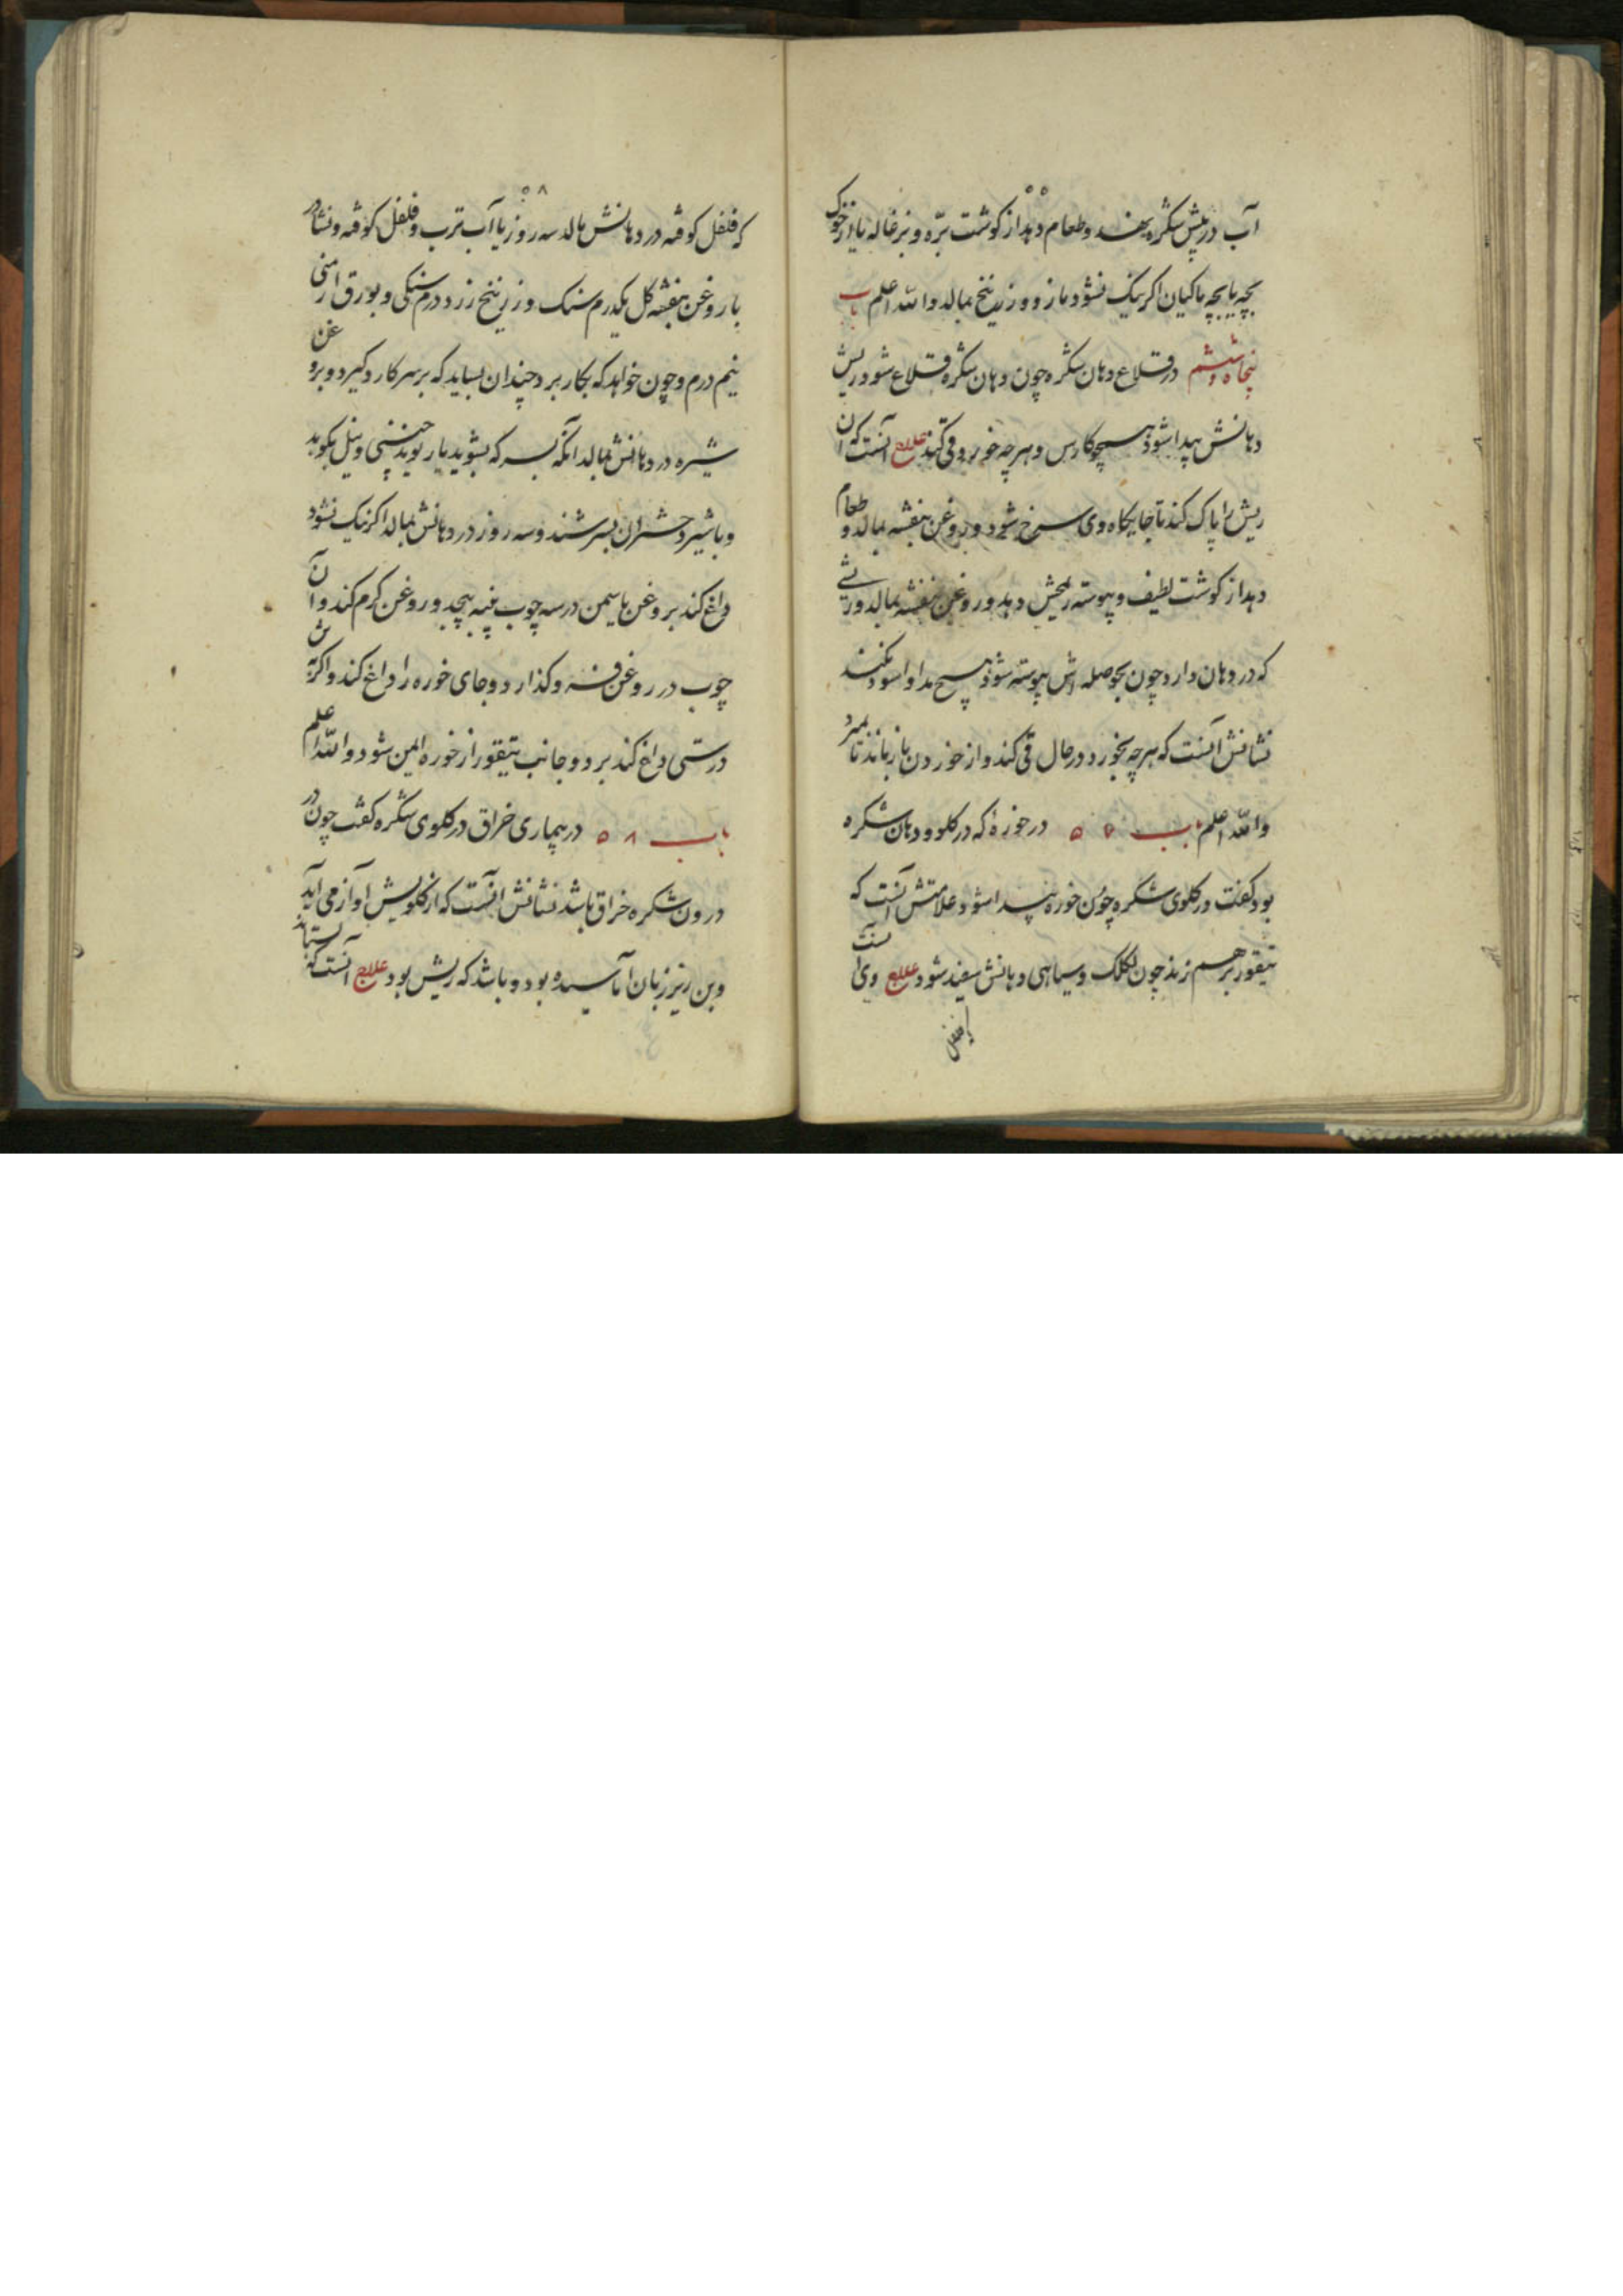 آب در پیش شکره بنهند و طعام دهد از گوشت بره و بزغاله یا از خوک
بچه یا بچه ماکیان اکر نیک نشود مازو و زرنیخ بمالد والله اعلم باب
پنجاه و ششم در قلاع دهان شکره چون دهان شکره قلاع شود ریش
دهانش پیدا شود همچو کاورس و هرچه خورد قی کند علاج آنست که آن
ریش را پاک کند تا جایکاه وی سرخ شود و بروغن بنفشه بمالد و طعام
دهد از کوشت لطیف و پیوسته دهد و روغن بنفشه بمالد و ریشی
که در دهان دارد چون بحوصله اش پیوسته شود هیچ مداوا سود نکند
نشانش آنست که هرچه بخورد در حال قی کند و از خوردن باز ماند تا بمیرد
والله اعلم باب ۵۷ در خوره که در کلو و دهان شکره
بود کفت در کلوی شکره چون خوره پیدا شود علامتش آنست که
تیقور برهم زند چون لکلک و سیاهی دهانش سفید شود علاج وی آنست
که فلفل
۵۸
که فلفل کوفته در دهانش مالد سه روز یا آب ترب و فلفل کوفته و نشادر
با روغن بنفشه کل یکدرم سنک و زرنیخ زرد درم سنکی و بورق ارمنی
نیم درم و چون خواهد که بکار برد چندان بساید که بر سر کارد کیرد و بروغن
شیره در دهانش بمالد آنکه بسرکه بشوید یا ریوند چینی و نیل بکوبد
و با شیر دختران بسرشند و سه روز در دهانش بمالد اکر نیک نشود
داغ کند بروغن یاسمن در سه چوب پنبه بپیچد و روغن کرم کند و آن
چوب در روغن فرو کذارد و جای خوره را داغ کند و اکرش
درستی داغ کند بر دو جانب تیقور از خوره ایمن شود والله اعلم
باب ۵۸ در بیماری خراق در کلوی شکره کفت چون در
درون شکره خراق باشد نشانش آنست که از کلویش آواز می آید
و بن زیر زبان آماسیده بود و باشد که ریش بود علاج آنست که بستاند